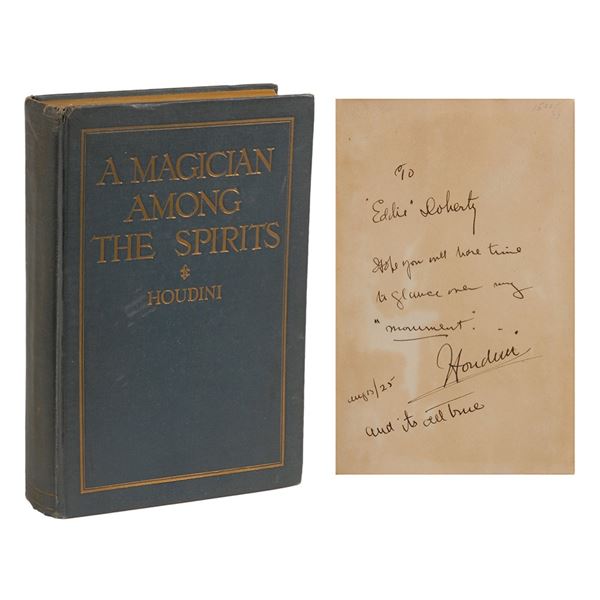 A MAGICIAN
AMONG
THE SPIRITS
HOUDINI
To
"Eddie" Doherty
Hope you will have time
to glance over my
"monument".
Houdini
and its all true